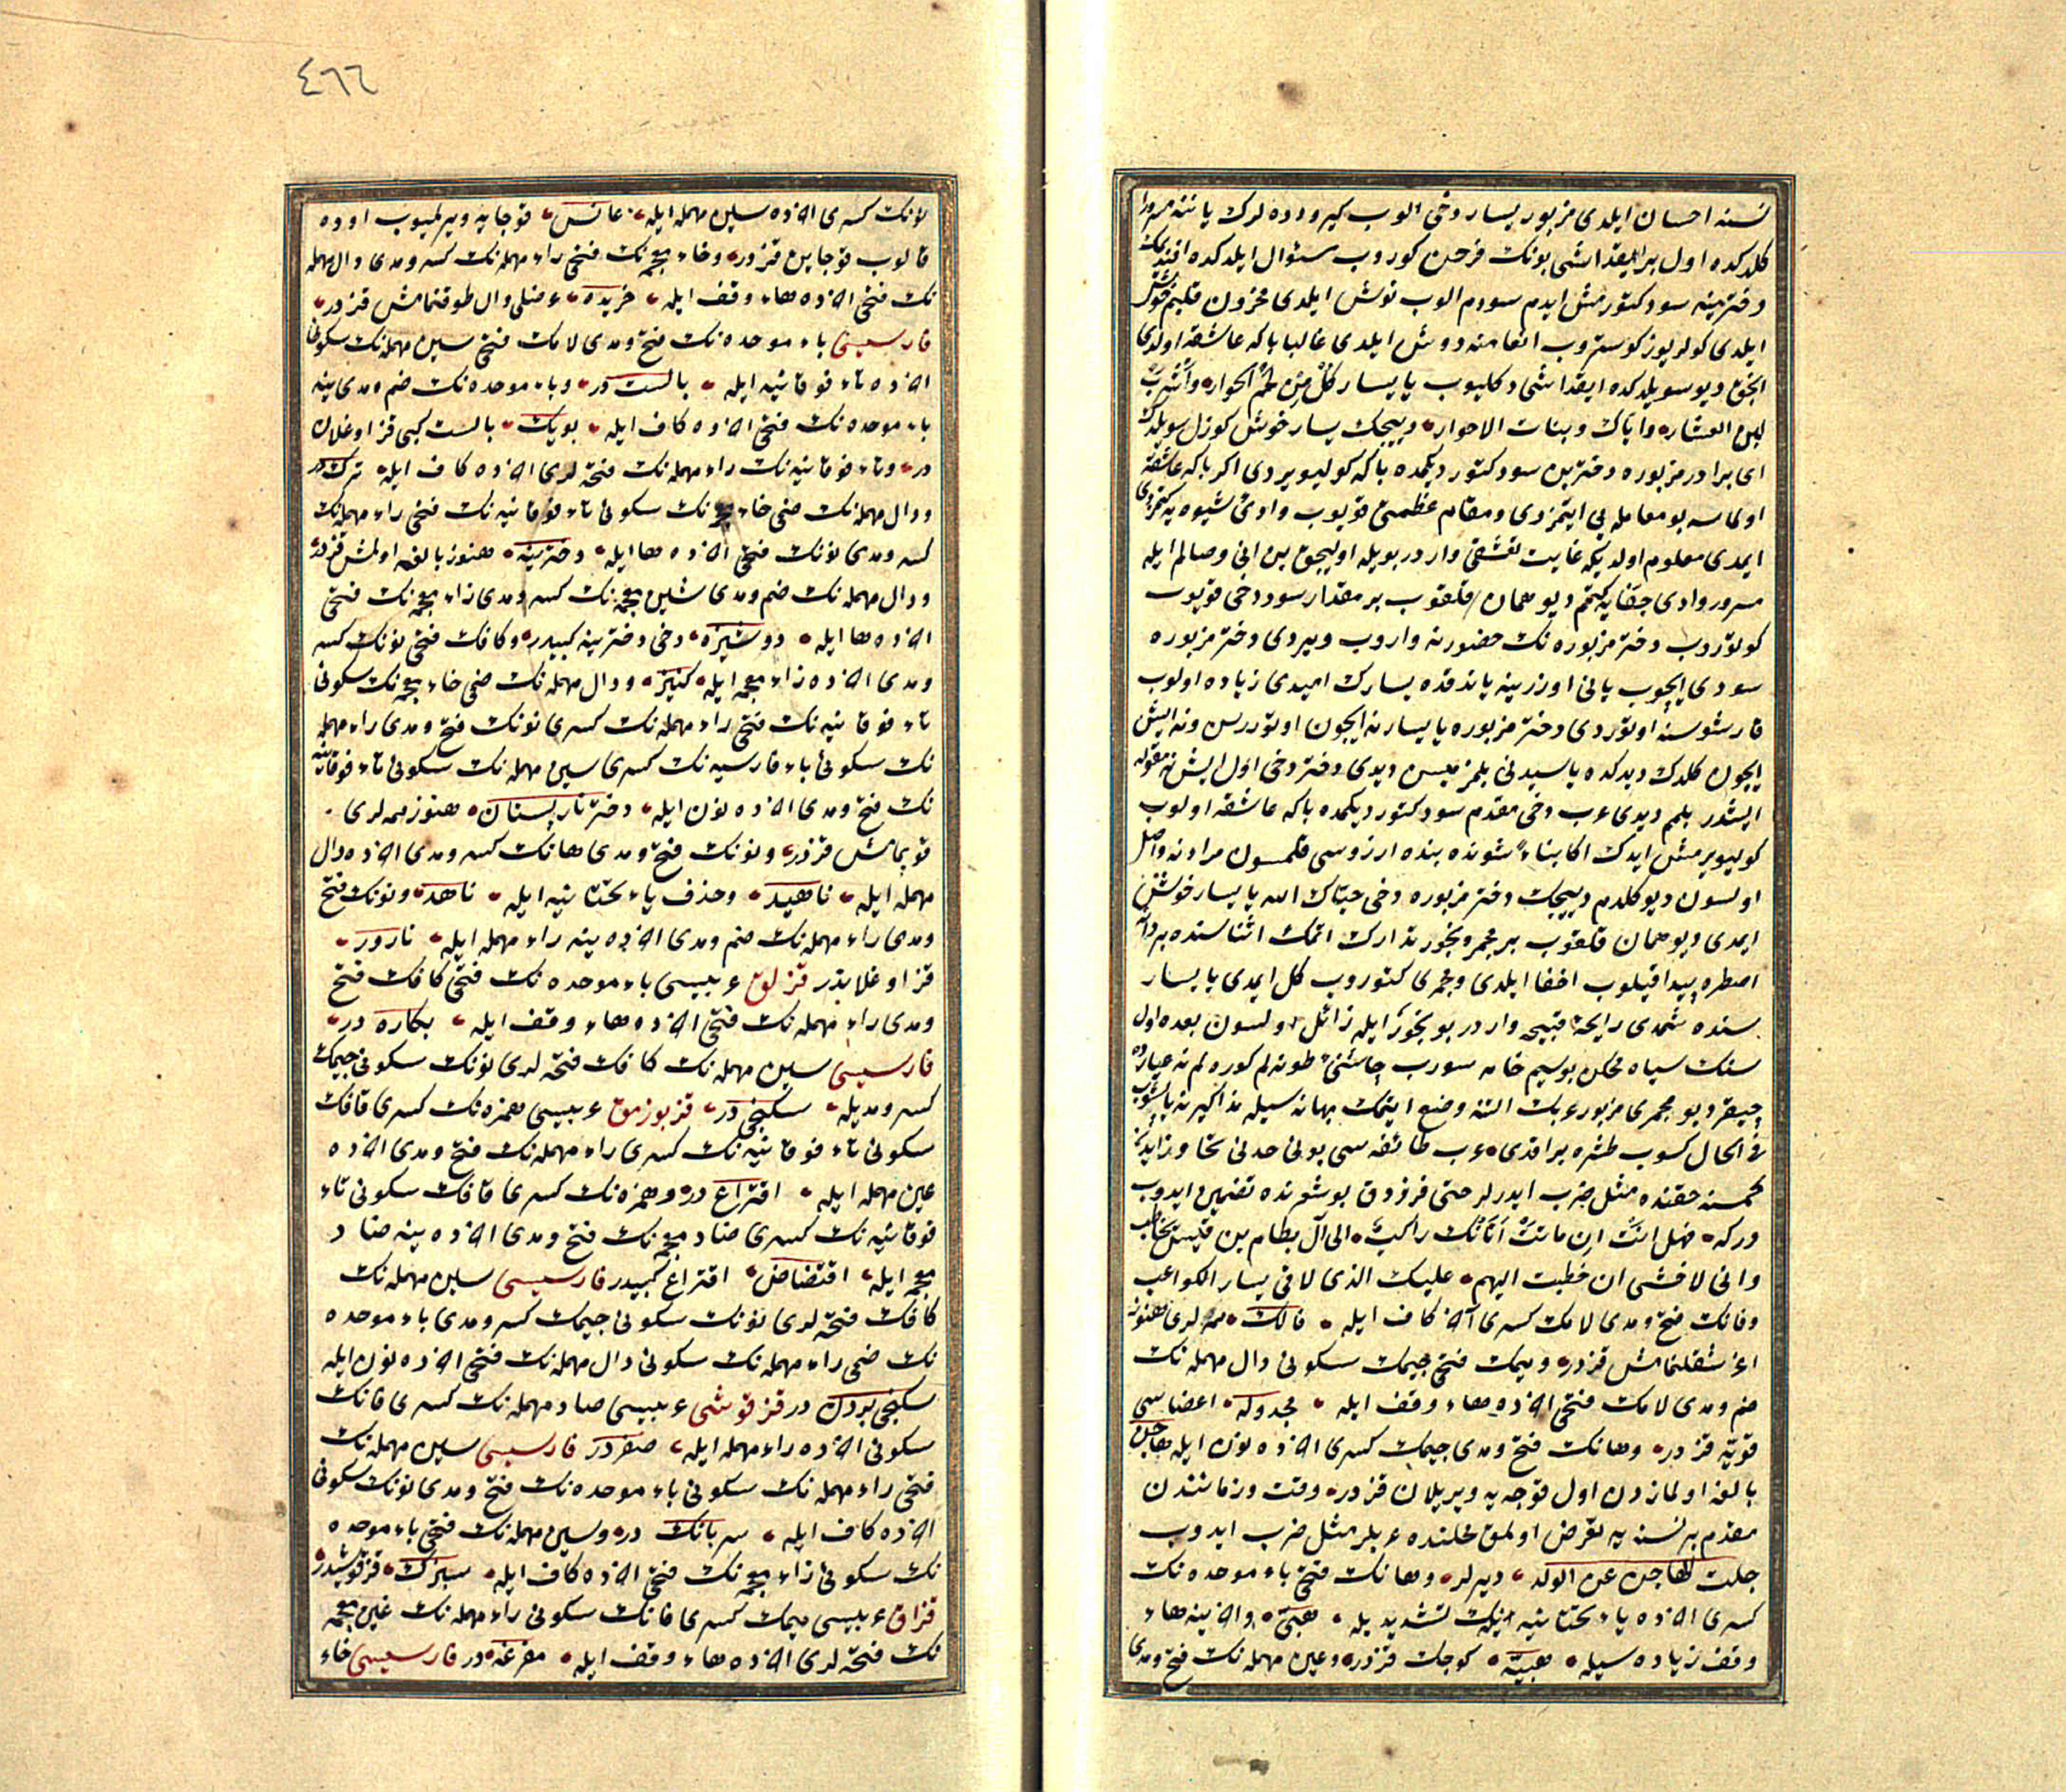 نسنه احسان ایلدی مزبور یسار دخی الوب کیرو دوه لرک یاننه مسرورا
کلدکده اول بر ایقداشی بونک فرحن کوروب سئوال ایلدکده افندیمک
دخترینه سود کتورمش ایدم سودم الوب نوش ایلدی محزون قلبم خوش
ایلدی کولر یوز کوستروب انعامنه دوش ایلدی غالبا باکه عاشقه اولدی
انجق دیو سویلدکده ایقداشی دکلیوب یا یسار کل من لحم الحوار واشرب
لبن العشار وایاک وبنات الاحرار دییجک یسار خوش کوزل سویلرک
ای برادر مزبوره دخترین سود کتوردیکمده باکه کولیویردی اکر باکه عاشقه
اولماسه بو معامله یی ایتمزدی ومقام عظمتی قویوب وادئ شیوه یه کتمزدی
ایمدی معلوم اولدیکه غایت تعشقی واردر بویله اولیجق بن انی وصالم ایله
مسرور وادی جفایه کتم دیو همان قلقوب بر مقدار سود دخی قویوب
کوتوروب دختر مزبوره نک حضورنه واروب ویردی دختر مزبوره
سودی ایچوب یانی اوزرینه یاتدقده یسارک امیدی زیاده اولوب
قارشوسنه اوتوردی دختر مزبوره یا یسار نه ایچون اوتوررسن ونه ایش
ایچون کلدک دیدکده یا سیدتی بلمزمیسن دیدی دختر دخی اول ایش نه مقوله
ایشدر بلمم دیدی عرب دخی مقدم سود کتوردیکمده باکه عاشقه اولوب
کولیویرمش ایدک اکا بناء شونده بنده ارزوسی قلمسون مرادنه واصل
اولسون دیو کلدم دییجک دختر مزبوره دخی حیاک الله یا یسار خوش
ایمدی دیو همان قلقوب بر مجمر وبخور تدارک اتمک اثناسنده بر دانه
اصطره پیدا قیلوب اخفا ایلدی ومجمری کتوروب کل ایمدی یا یسار
سنده شمدی رایحۀ قبیحه واردر بو بخور ایله زائل اولسون بعده اول
سنک سیاه محکن بو سیم خامه سورب چاشنئ طوتەلم کوره لم نه عیارده
چیقر دیو مجمری مزبور عربک التنه وضع ایتمک بهانه سیله مذاکیرنه یاپشوب
فی الحال کسوب طشره براقدی عرب طائفه سی بونی حدنی تجاوز ایدن
کمسنه حقنده مثل ضرب ایدرلر حتی فرزدق بو شعرنده تضمین ایدوب
درکه فهل انت ان ماتت اتانک راکب الی آل بطام بن قیس بخاطب
وانی لاخشی ان خطبت الیهم علیک الذی لاقی یسار الکواعب
وفانک فتح ومدی لامک کسری آخر کاف ایله فالک ممه لری هنوز
اغرشقلنمامش قزدر ومیمک فتحی جیمک سکونی دال مهمله نک
ضم ومدی لامک فتحی اخرده هاء وقف ایله مجدوله اعضاسی
قویه قزدر وهانک فتح ومدی جیمک کسری اخرده نون ایله هاجن
بالغه اولمازدن اول قوجه یه ویریلان قزدر وقت وزمانندن
مقدم بر نسنه یه تعرض اولمق محلنده عربلر مثل ضرب ایدوب
جلت الهاجن عن الولد دیرلر وهانک فتحی باء موحده نک
کسری اخرده یاء تحتانیه نیکک تشدیدیله هبی واخرینه هاء
وقف زیاده سیله هبیه کوچک قزدر وعین مهمله نک فتح ومدی
٤٦٦
نونک کسری اخرده سین مهمله ایله عانس قوجایه ویرلمیوب اوده
قالوب قوجایین قزدر وخاء معجمه نک فتحی راء مهمله نک کسر ومدی دال مهمله
نک فتحی اخرده هاء وقف ایله خریده عفتلی وال طوقنمامش قزدر
فارسیسی باء موحده نک فتح ومدی لامک فتحی سین مهمله نک سکونی
اخرده تاء فوقانیه ایله بالست در وباء موحده نک ضم ومدی ینه
باء موحده نک فتحی اخرده کاف ایله بوبک بالست کبی قز اوغلان
در وتاء فوقانیه نک راء مهمله نک فتحه لری اخرده کاف ایله ترک در
ودال مهمله نک ضمی خاء معجمه نک سکونی تاء فوقانیه نک فتحی راء مهمله نک
کسر ومدی نونک فتحی اخرده ها ایله دخترینه هنوز بالغه اولمش قزدر
ودال مهمله نک ضم ومدی شین معجمه نک کسر ومدی زاء معجمه نک فتحی
اخرده ها ایله دوشیزه دخی دخترینه کبیدر وکافک فتحی نونک کسر
ومدی اخرده زاء معجمه ایله کنیز ودال مهمله نک ضمی خاء معجمه نک سکونی
تاء فوقانیه نک فتحی راء مهمله نک کسری نونک فتح ومدی راء مهمله
نک سکونی باء فارسیه نک کسری سین مهمله نک سکونی تاء فوقانیه
نک فتح ومدی اخرده نون ایله دختر نارپستان هنوز ممه لری
قوپمامش قزدر ونونک فتح ومدی هانک کسر ومدی اخرده دال
مهمله ایله ناهید وحذف یاء تحتانیه ایله ناهد ونونک فتح
ومدی راء مهمله نک ضم ومدی اخرده ینه راء مهمله ایله نارور
قز اوغلانیدر قزلق عربیسی باء موحده نک فتحی کافک فتح
ومدی راء مهمله نک فتحی اخرده هاء وقف ایله بکاره در
فارسیسی سین مهمله نک کافک فتحه لری نونک سکونی جیمک
کسر ومدیله سکنجی در قز بوزمق عربیسی همزه نک کسری قافک
سکونی تاء فوقانیه نک کسری راء مهمله نک فتح ومدی اخرده
عین مهمله ایله اقتراع در وهمزه نک کسری قافک سکونی تاء
فوقانیه نک کسری ضاد معجمه نک فتح ومدی اخرده ینه ضاد
معجمه ایله اقتضاض اقتراع کبیدر فارسیسی سین مهمله نک
کافک فتحه لری نونک سکونی جیمک کسر ومدی باء موحده
نک ضمی راء مهمله نک سکونی دال مهمله نک فتحی اخرده نون ایله
سکنجی بردن در قزقوشی عربیسی صاد مهمله نک کسری فانک
سکونی اخرده راء مهمله ایله صفردر فارسیسی سین مهمله نک
فتحی راء مهمله نک سکونی باء موحده نک فتح ومدی نونک سکونی
اخرده کاف ایله سربانک در وسین مهمله نک فتحی باء موحده
نک سکونی زاء معجمه نک فتحی اخرده کاف ایله سبزک قزقوشیدر
قزاق عربیسی میمک کسری فانک سکونی راء مهمله نک غین معجمه
نک فتحه لری اخرده هاء وقف ایله مفرغه در فارسیسی خاء